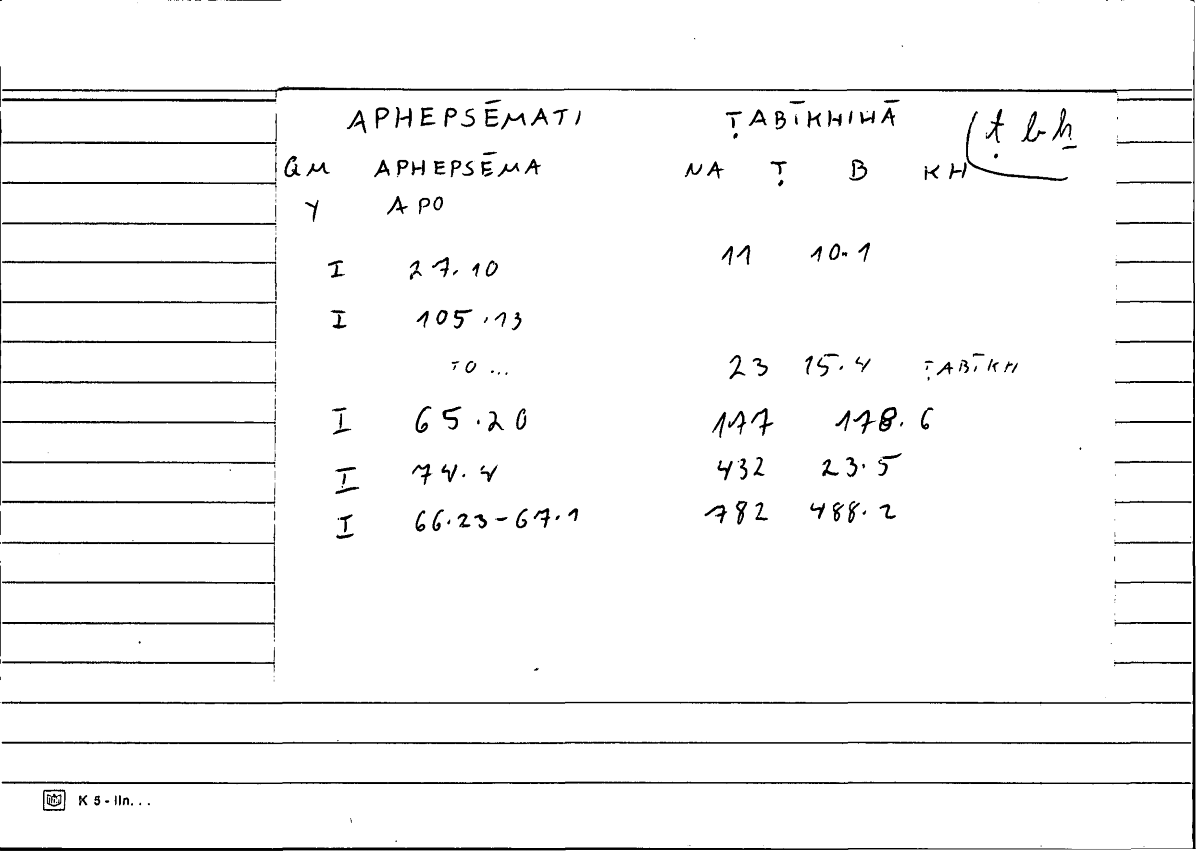 APHEPSĒMATI ṬABĪKHIHĀ (ṭ b ḫ
QM APHEPSĒMA NA Ṭ B KH
Y APO
I 27.10 11 10.1
I 105.13
TO ... 23 15.4 ṬABĪKH
I 65.20 177 178.6
I 74.4 432 23.5
I 66.23-67.1 782 488.2
K 5 - lln. . .